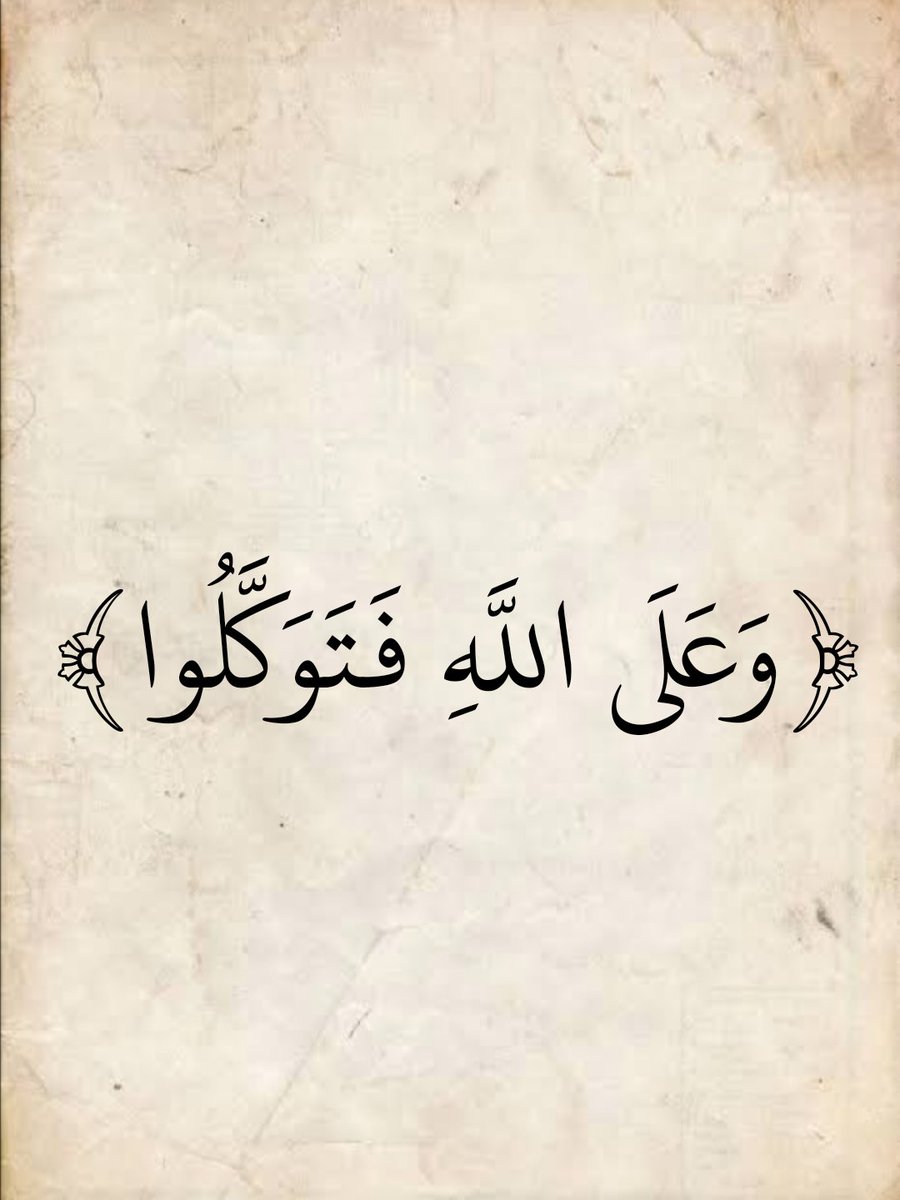 ﴿ وَعَلَى اللَّهِ فَتَوَكَّلُوا ﴾